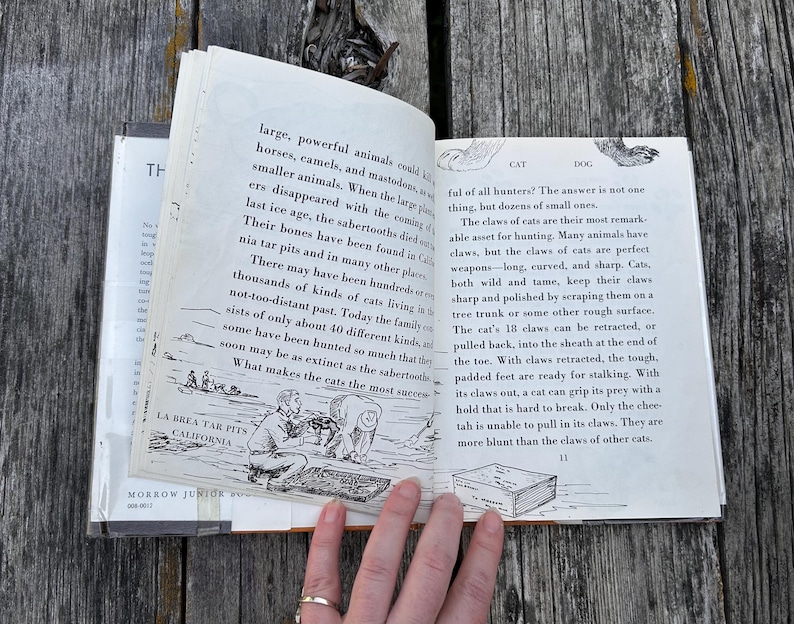 TH
No w
toug
in w
leop
ocel
tou
co-
the
de
MORROW JUNIOR BOO
008-0012
large, powerful animals could kill
horses, camels, and mastodons, as w
smaller animals. When the large plant
ers disappeared with the coming of
last ice age, the sabertooths died out too
Their bones have been found in Califo
nia tar pits and in many other places.
There may have been hundreds or even
thousands of kinds of cats living in the
not-too-distant past. Today the family con
sists of only about 40 different kinds, and
some have been hunted so much that they
soon may be as extinct as the sabertooths.
What makes the cats the most success-
LA BREA TAR PITS
CALIFORNIA
CAT DOG
ful of all hunters? The answer is not one
thing, but dozens of small ones.
The claws of cats are their most remark-
able asset for hunting. Many animals have
claws, but the claws of cats are perfect
weapons—long, curved, and sharp. Cats,
both wild and tame, keep their claws
sharp and polished by scraping them on a
tree trunk or some other rough surface.
The cat's 18 claws can be retracted, or
pulled back, into the sheath at the end of
the toe. With claws retracted, the tough,
padded feet are ready for stalking. With
its claws out, a cat can grip its prey with a
hold that is hard to break. Only the chee-
tah is unable to pull in its claws. They are
more blunt than the claws of other cats.
11
TO MUSEUM